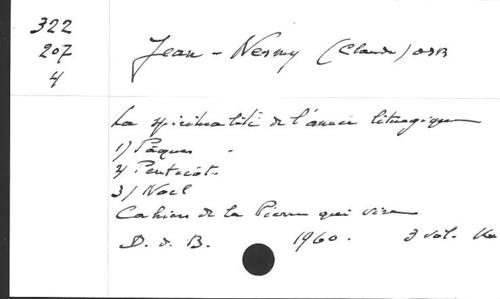 322
207
4
Jean-Nesmy (Claude) OSB
La spiritualité de l'année liturgique
1) Pâques
2) Pentecôte
3) Noël
Cahiers de la Pierre qui vire
D. d. B. 1960. 3 vol.